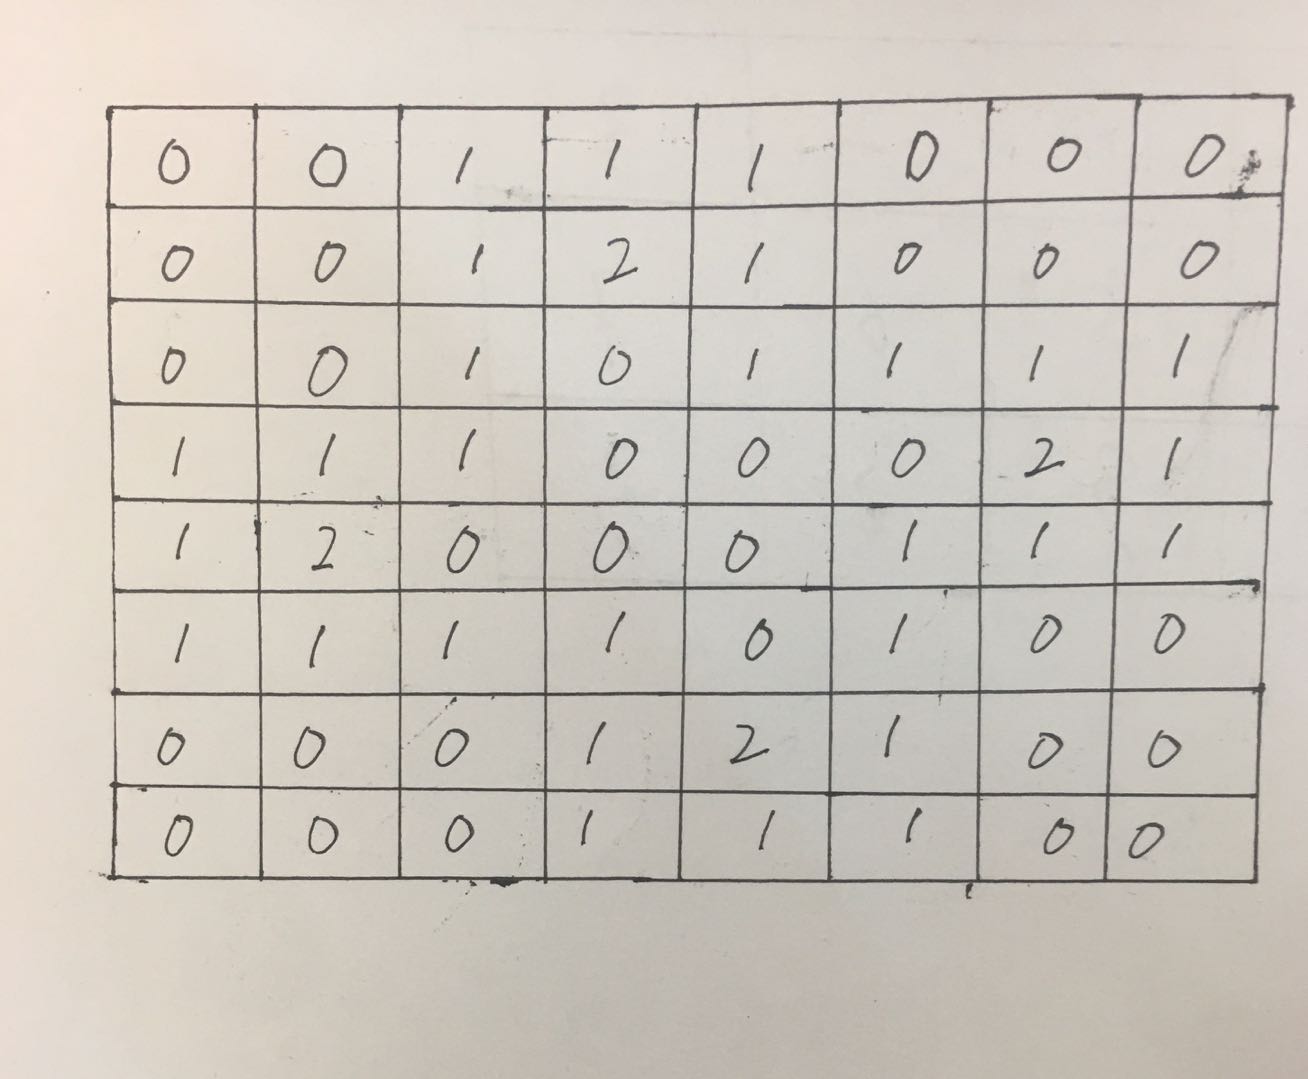 0 0 1 1 1 0 0 0
0 0 1 2 1 0 0 0
0 0 1 0 1 1 1 1
1 1 1 0 0 0 2 1
1 2 0 0 0 1 1 1
1 1 1 1 0 1 0 0
0 0 0 1 2 1 0 0
0 0 0 1 1 1 0 0